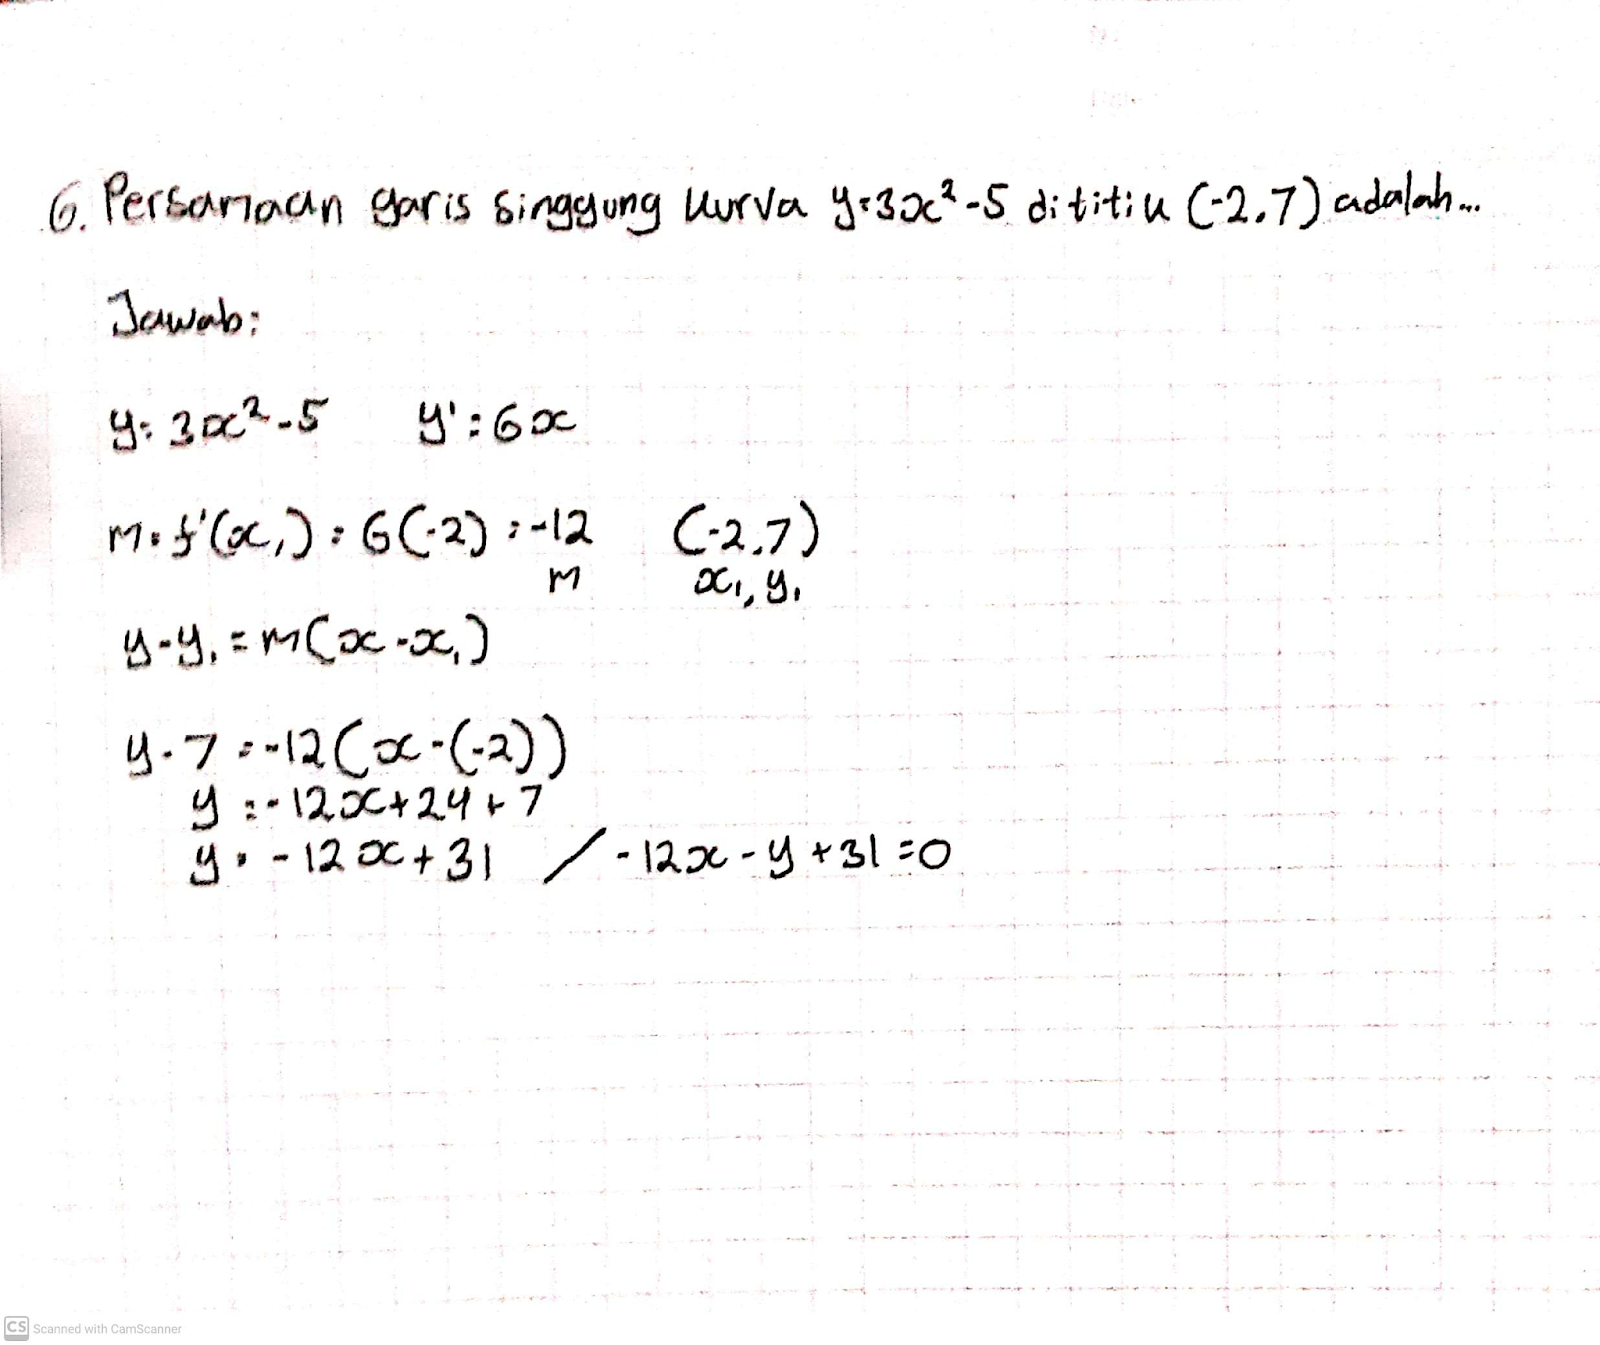 6. Persamaan garis singgung kurva y=3x²-5 di titik (-2,7) adalah...
Jawab:
y= 3x²-5 y'=6x
m=f'(x₁)=6(-2)=-12 (-2,7)
m x₁, y₁
y-y₁=m(x-x₁)
y-7=-12(x-(-2))
y=-12x+24+7
y=-12x+31 / -12x-y+31=0
CS Scanned with CamScanner